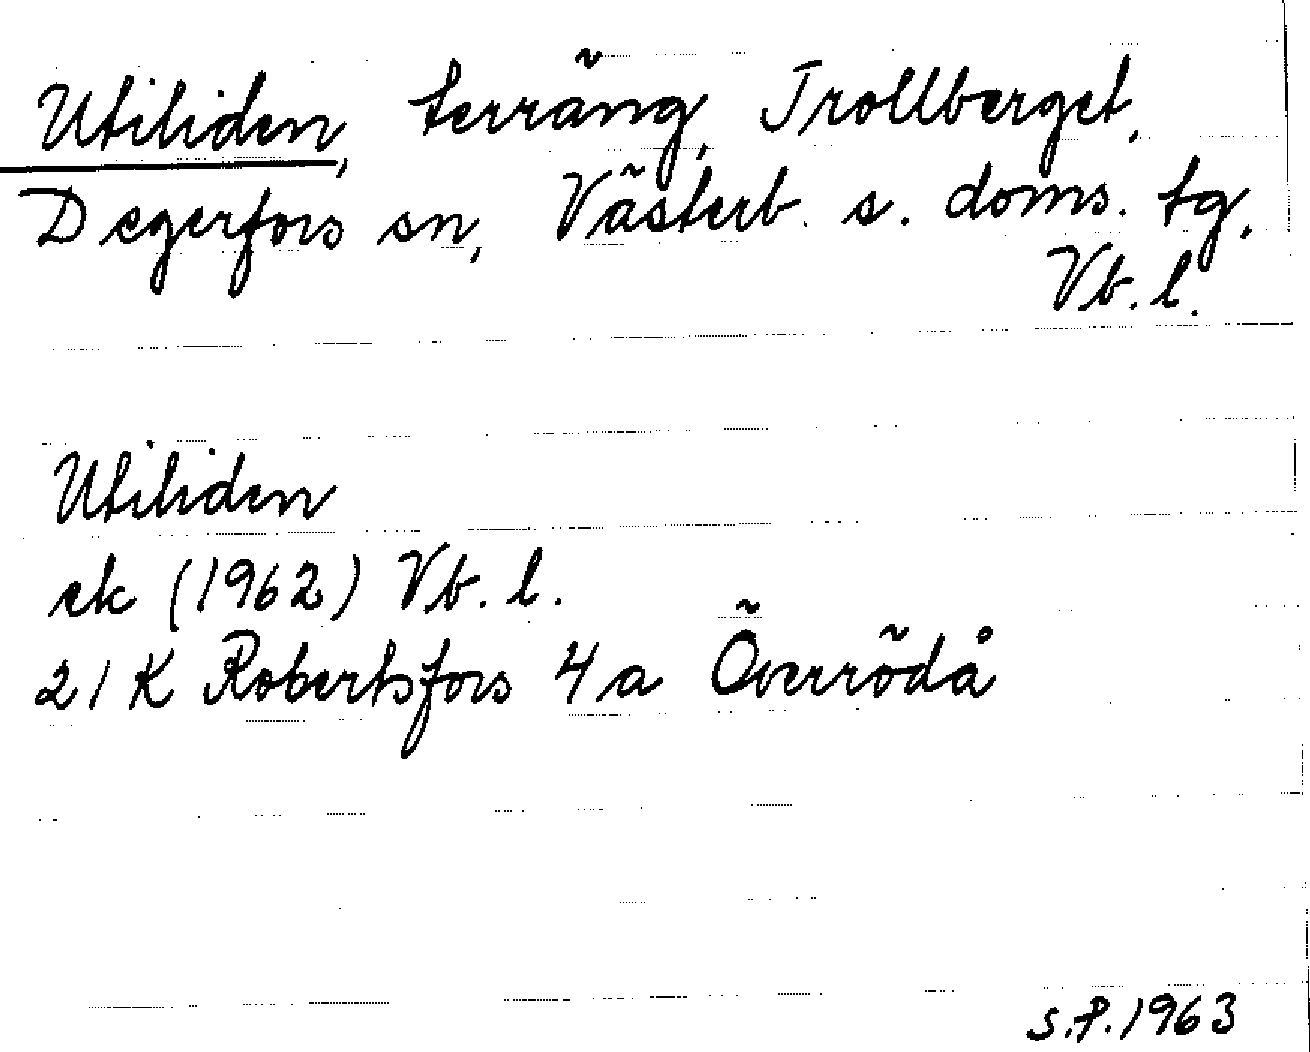 Utiliden, terräng, Trollberget,
Degerfors sn, Västerb. s. doms. tg,
Vb. l.
Utiliden
ek (1962) Vb. l.
21 K Robertsfors 4 a Överrödå
S.P. 1963